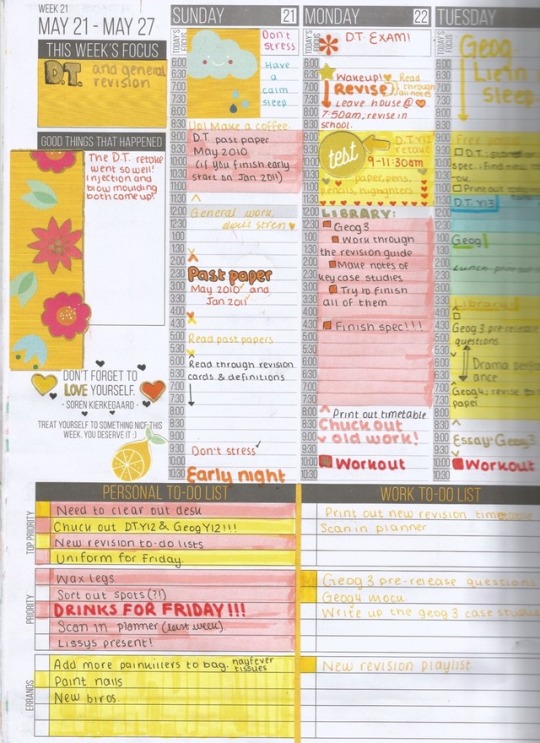 WEEK 21
MAY 21 - MAY 27
THIS WEEK'S FOCUS
D.T. and general
revision
GOOD THINGS THAT HAPPENED
The D.T. retake
went so well!
Injection and
blow moulding
both came up!
DON'T FORGET TO
LOVE YOURSELF.
- SOREN KIERKEGAARD -
TREAT YOURSELF TO SOMETHING NICE THIS
WEEK. YOU DESERVE IT :)
SUNDAY 21
TODAY'S FOCUS
Don't
stress
Have
a
calm
sleep
Up! Make a coffee
D.T. past paper
May 2010
(if you finish early
start on Jan 2011)
General work,
don't stress
Past paper
May 2010 and
Jan 2011
Read past papers
Read through revision
cards & definitions
Don't stress
Early night
MONDAY 22
TODAY'S FOCUS
D.T. EXAM!
Wakeup!
Revise
Read
through
all notes
Leave house @
7:50am, revise in
school.
test
D.T. Y12
retake
9-11:30am
paper, pens,
pencils, highlighters
LIBRARY:
Geog 3
Work through
the revision guide
Make notes of
key case studies
Try to finish
all of them
Finish spec!!!
Print out timetable
Chuck out
old work!
Workout
TUESDAY
TODAY'S FOCUS
Geog
Lie in
Sleep
Free
D.T.
Print out
D.T. Y13
Geog
Library
Geog 3 pre release
questions
Drama perform
ance
Geog4: revise
paper
Essay: Geog3
Workout
PERSONAL TO-DO LIST
TOP PRIORITY
Need to clear out desk
Chuck out DTY12 & GeogY12!!!
New revision to-do lists
Uniform for Friday.
PRIORITY
Wax legs
Sort out spots(?!)
DRINKS FOR FRIDAY!!!
Scan in planner (last week)
Lissys present!
ERRANDS
Add more painkillers to bag. hayfever
tissues
Paint nails
New biros.
WORK TO-DO LIST
Print out new revision timetable
Scan in planner
Geog 3 pre-release questions
Geog4 mock
Write up the geog 3 case studies
New revision playlist